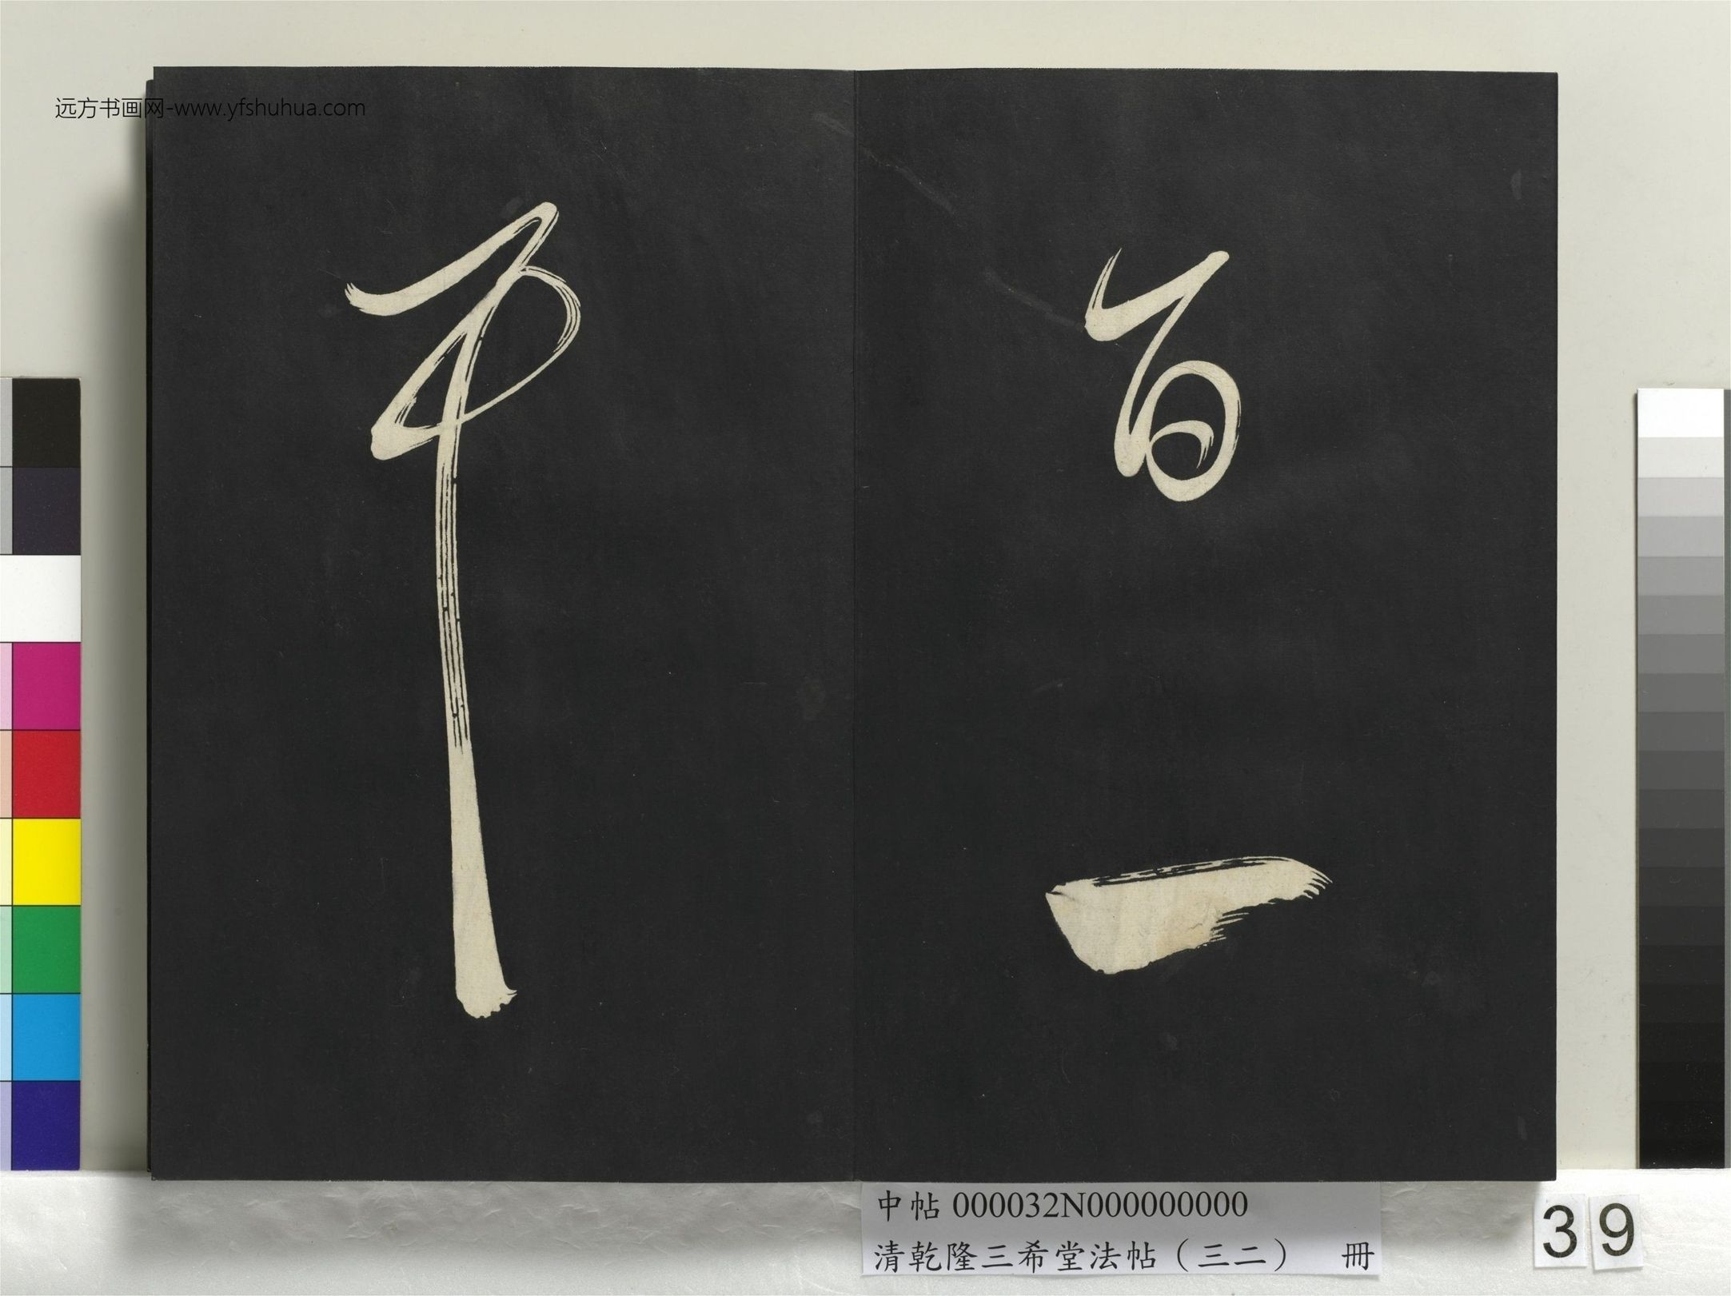 远方书画网-www.yfshuhua.com
百
一
中帖 000032N000000000
清乾隆三希堂法帖（三二） 冊
39